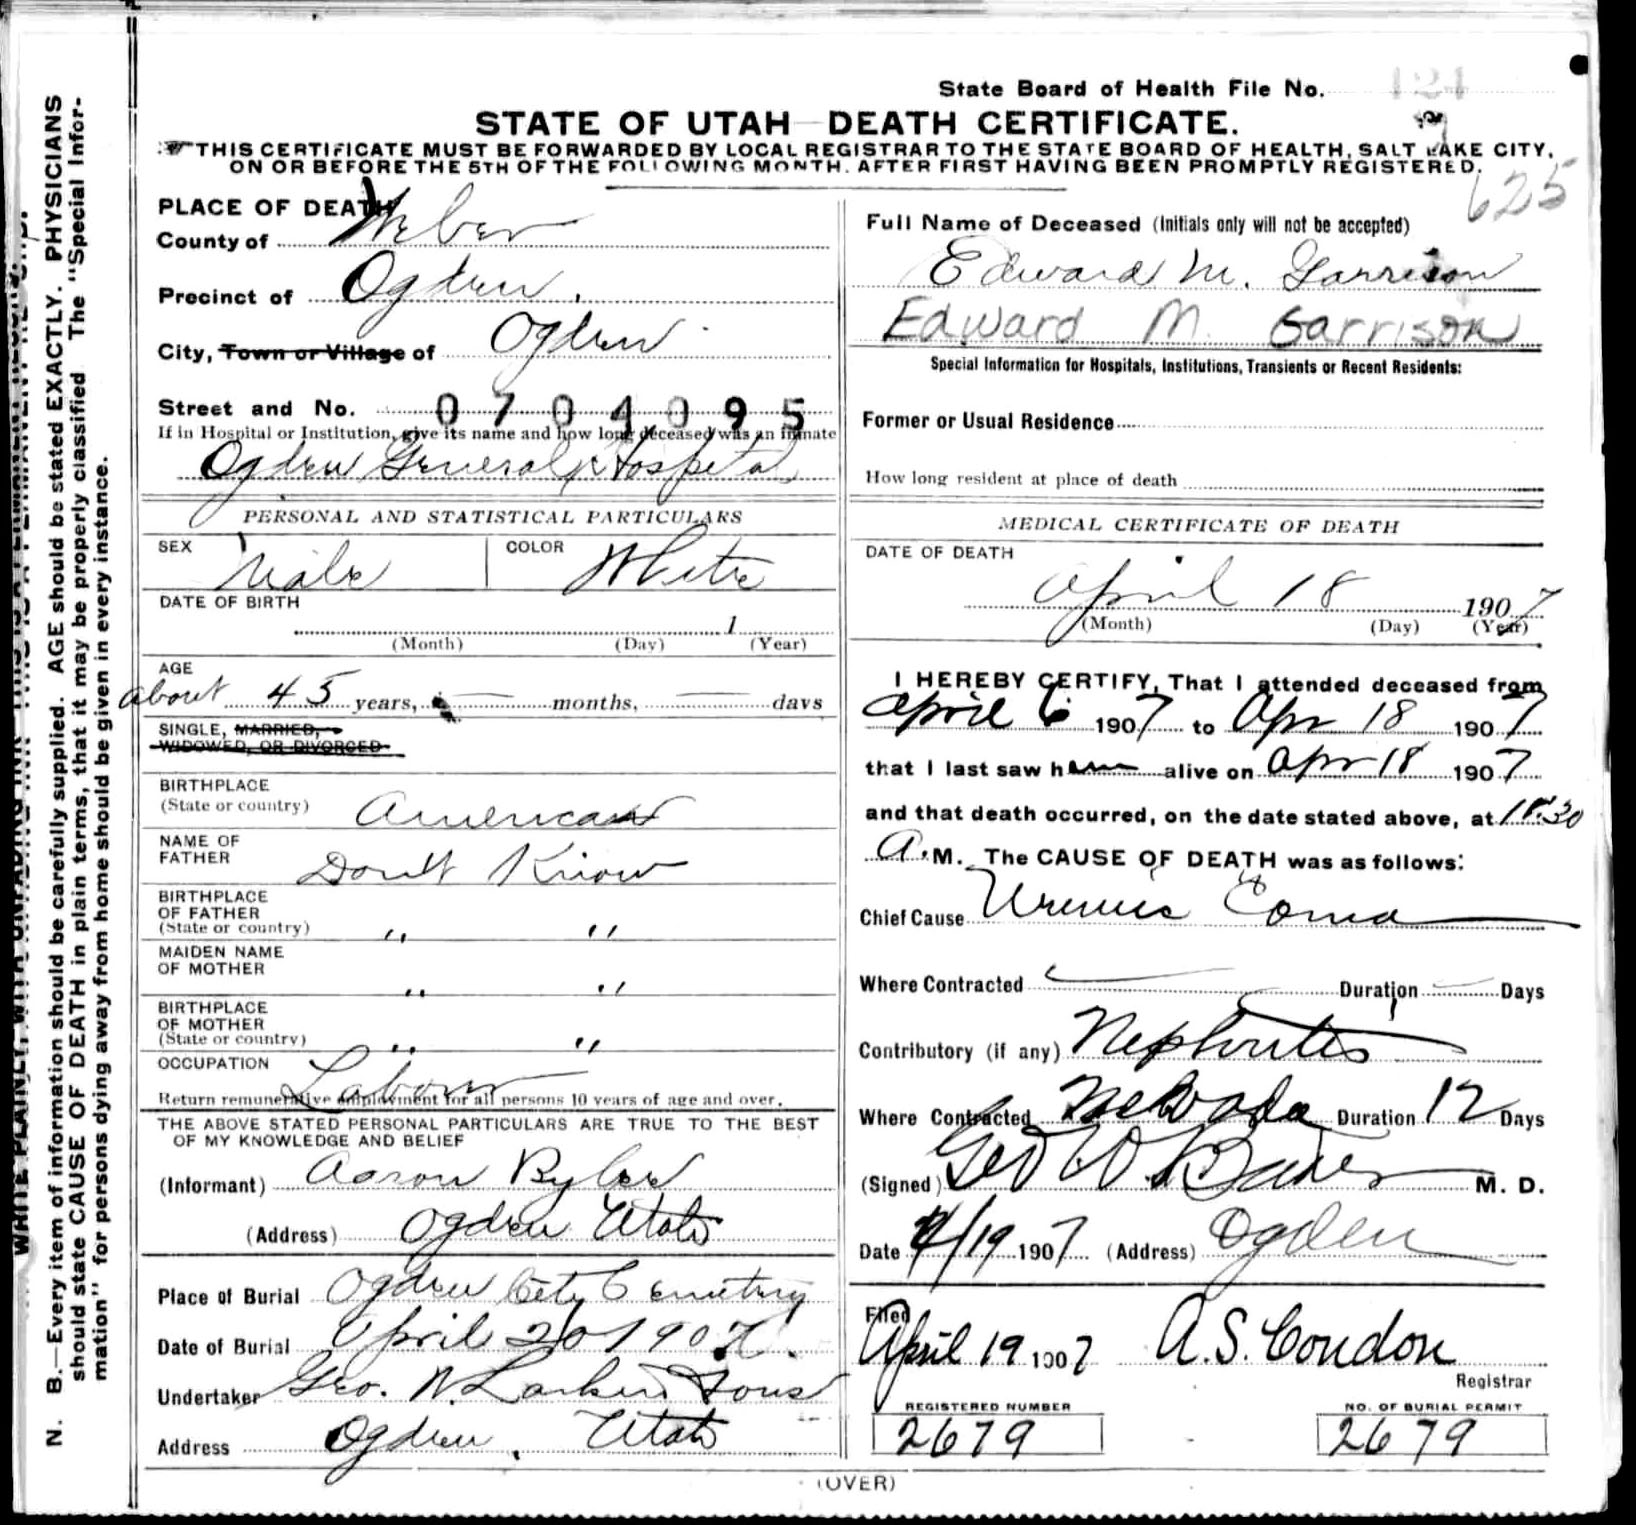 State Board of Health File No. 424
STATE OF UTAH DEATH CERTIFICATE.
THIS CERTIFICATE MUST BE FORWARDED BY LOCAL REGISTRAR TO THE STATE BOARD OF HEALTH, SALT LAKE CITY,
ON OR BEFORE THE 5TH OF THE FOLLOWING MONTH. AFTER FIRST HAVING BEEN PROMPTLY REGISTERED.
625
PLACE OF DEATH
County of Weber
Precinct of Ogden
City, Town or Village of Ogden
Street and No. 0704095
If in Hospital or Institution, give its name and how long deceased was an inmate
Ogden General Hospital
PERSONAL AND STATISTICAL PARTICULARS
SEX Male COLOR White
DATE OF BIRTH
1
(Month) (Day) (Year)
AGE
about 45 years, months, days
SINGLE, MARRIED,
WIDOWED, OR DIVORCED
BIRTHPLACE
(State or country) American
NAME OF
FATHER Don't Know
BIRTHPLACE
OF FATHER
(State or country) " "
MAIDEN NAME
OF MOTHER " "
BIRTHPLACE
OF MOTHER
(State or country) " "
OCCUPATION
Labour
Return remunerative employment for all persons 10 years of age and over.
THE ABOVE STATED PERSONAL PARTICULARS ARE TRUE TO THE BEST
OF MY KNOWLEDGE AND BELIEF
(Informant) Aaron Byler
(Address) Ogden Utah
Place of Burial Ogden City Cemetery
Date of Burial April 20 1907.
Undertaker Geo. W. Larkin & Sons
Address Ogden, Utah
Full Name of Deceased (Initials only will not be accepted)
Edward M. Garrison
Edward M. Garrison
Special Information for Hospitals, Institutions, Transients or Recent Residents:
Former or Usual Residence
How long resident at place of death
MEDICAL CERTIFICATE OF DEATH
DATE OF DEATH
April 18 1907
(Month) (Day) (Year)
I HEREBY CERTIFY, That I attended deceased from
April 6 1907 to Apr 18 1907
that I last saw him alive on Apr 18 1907
and that death occurred, on the date stated above, at 11:30
A.M. The CAUSE OF DEATH was as follows:
Chief Cause Uremic Coma
Where Contracted Duration Days
Contributory (if any) Nephritis
Where Contracted Nevada Duration 12 Days
(Signed) Geo W. Baker M. D.
Date 4/19 1907 (Address) Ogden
Filed
April 19 1907 A. S. Condon
Registrar
REGISTERED NUMBER
2679
NO. OF BURIAL PERMIT
2679
(OVER)
N. B.—Every item of information should be carefully supplied. AGE should be stated EXACTLY. PHYSICIANS
should state CAUSE OF DEATH in plain terms, that it may be properly classified The "Special Infor-
mation" for persons dying away from home should be given in every instance.